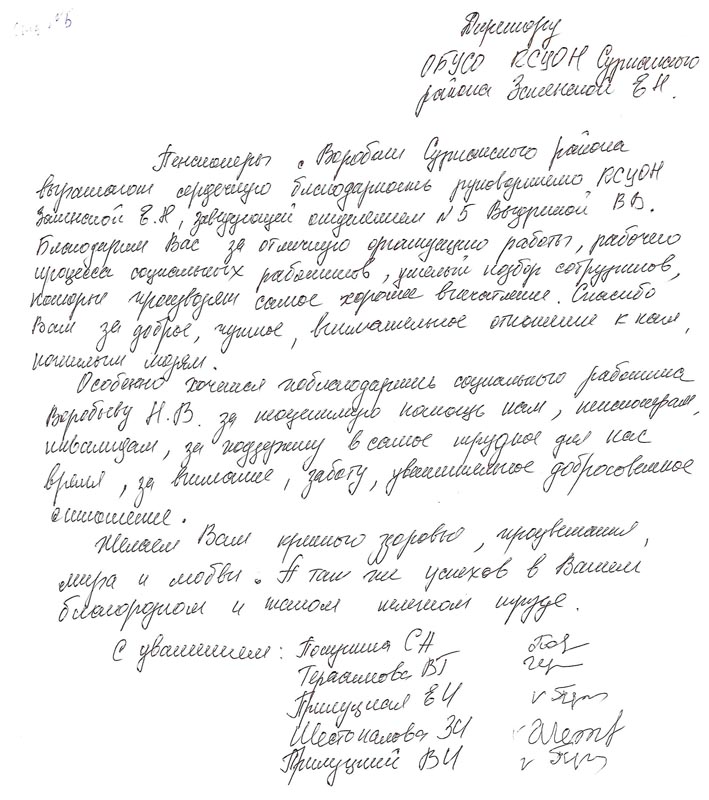 Директору
ОБУСО КСЦОН Суджанского
района Заменской Е Н.
Пенсионеры с. Воробжи Суджанского района
выражают сердечную благодарность руководителю КСЦОН
Е.Н, заведующей отделением №5 Выдриной В В.
Благодарим Вас за отличную организацию работы, рабочего
процесса социальных работников, умелый подбор сотрудников,
которые производят самое хорошее впечатление. Спасибо
Вам за доброе, чуткое, внимательное отношение к нам,
пожилым людям.
Особенно хочется поблагодарить социального работника
Воробьеву Н.В. за неоценимую помощь нам, пенсионерам,
инвалидам, за поддержку в самое трудное для нас
время, за внимание, заботу, уважительное добросовестное
отношение.
Желаем Вам крепкого здоровья, процветания,
мира и любви. А так же успехов в Вашем
благородном и таком нелегком труде.
С уважением: СА
Герасимова ВГ
Прилуцкая ЕИ
Шестопалова ЗИ
Прилуцкий ВИ